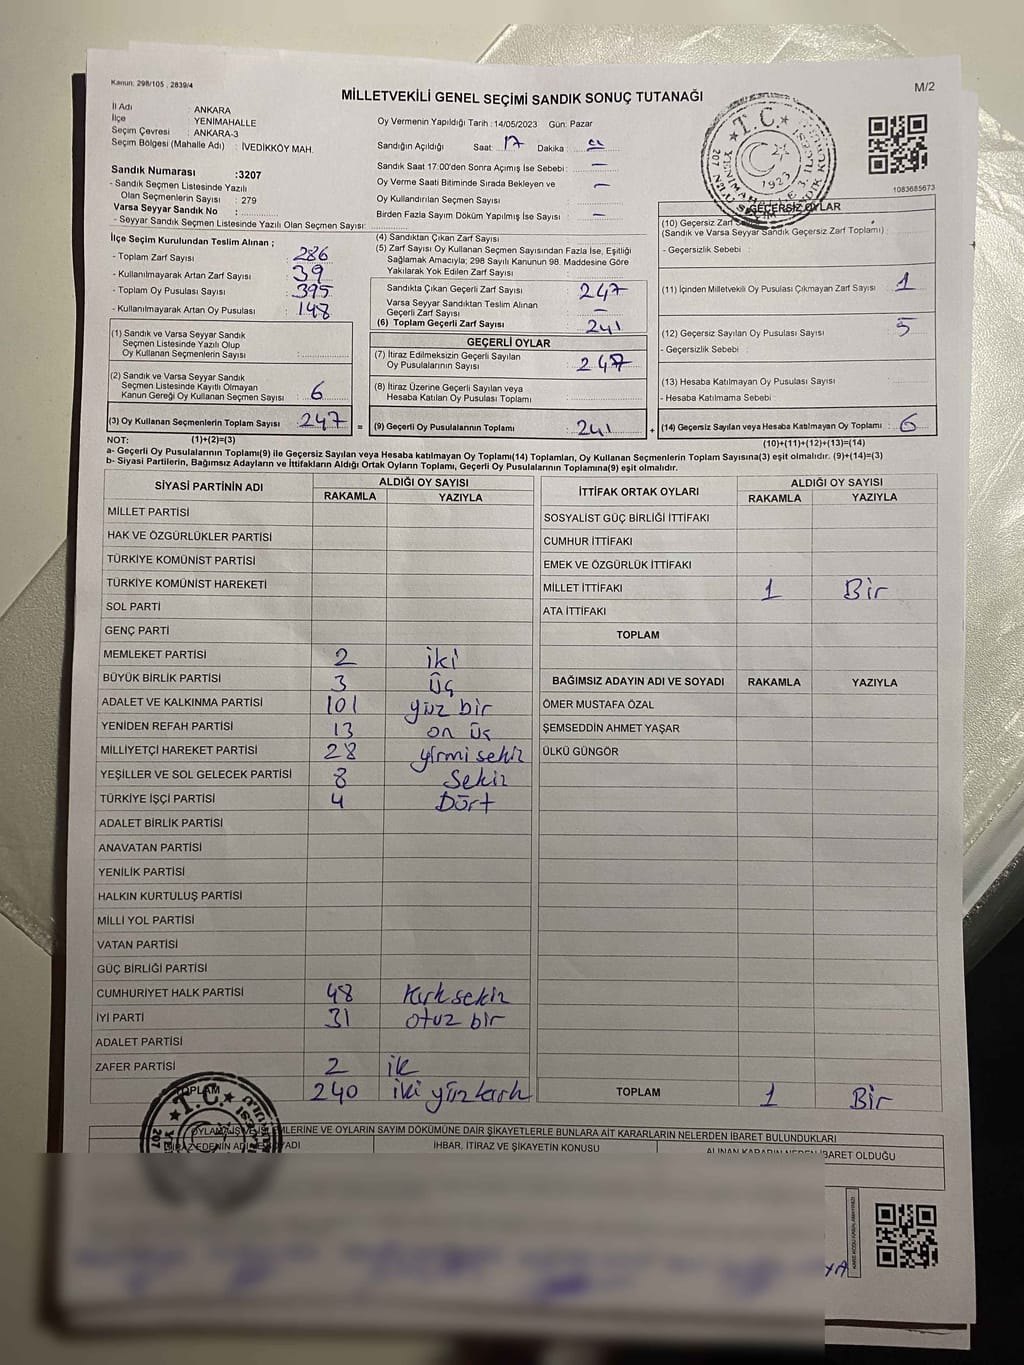 Kanun: 298/105 , 2839/4
M/2
MİLLETVEKİLİ GENEL SEÇİMİ SANDIK SONUÇ TUTANAĞI
İl Adı : ANKARA
İlçe : YENİMAHALLE
Seçim Çevresi : ANKARA-3
Seçim Bölgesi (Mahalle Adı) : İVEDİKKÖY MAH.
Sandık Numarası :3207
- Sandık Seçmen Listesinde Yazılı
Olan Seçmenlerin Sayısı : 279
Varsa Seyyar Sandık No :
- Seyyar Sandık Seçmen Listesinde Yazılı Olan Seçmen Sayısı:
Oy Vermenin Yapıldığı Tarih : 14/05/2023 Gün: Pazar
Sandığın Açıldığı Saat: 17 Dakika :
Sandık Saat 17:00'den Sonra Açımış İse Sebebi : —
Oy Verme Saati Bitiminde Sırada Bekleyen ve
Oy Kullandırılan Seçmen Sayısı : —
Birden Fazla Sayım Döküm Yapılmış İse Sayısı : —
T.C.
1923
1083685673
İlçe Seçim Kurulundan Teslim Alınan ;
- Toplam Zarf Sayısı : 286
- Kullanılmayarak Artan Zarf Sayısı : 39
- Toplam Oy Pusulası Sayısı : 395
- Kullanılmayarak Artan Oy Pusulası : 148
(1) Sandık ve Varsa Seyyar Sandık
Seçmen Listesinde Yazılı Olup
Oy Kullanan Seçmenlerin Sayısı :
(2) Sandık ve Varsa Seyyar Sandık
Seçmen Listesinde Kayıtlı Olmayan
Kanun Gereği Oy Kullanan Seçmen Sayısı : 6
(3) Oy Kullanan Seçmenlerin Toplam Sayısı : 247 =
(4) Sandıktan Çıkan Zarf Sayısı
(5) Zarf Sayısı Oy Kullanan Seçmen Sayısından Fazla İse, Eşitliği
Sağlamak Amacıyla; 298 Sayılı Kanunun 98. Maddesine Göre
Yakılarak Yok Edilen Zarf Sayısı
Sandıkta Çıkan Geçerli Zarf Sayısı : 247
Varsa Seyyar Sandıktan Teslim Alınan
Geçerli Zarf Sayısı : —
(6) Toplam Geçerli Zarf Sayısı : 241
GEÇERLİ OYLAR
(7) İtiraz Edilmeksizin Geçerli Sayılan
Oy Pusulalarının Sayısı : 247
(8) İtiraz Üzerine Geçerli Sayılan veya
Hesaba Katılan Oy Pusulası Toplamı :
(9) Geçerli Oy Pusulalarının Toplamı : 241 +
GEÇERSİZ OYLAR
(10) Geçersiz Zarf
(Sandık ve Varsa Seyyar Sandık Geçersiz Zarf Toplamı) :
- Geçersizlik Sebebi :
(11) İçinden Milletvekili Oy Pusulası Çıkmayan Zarf Sayısı : 1
(12) Geçersiz Sayılan Oy Pusulası Sayısı : 5
- Geçersizlik Sebebi :
(13) Hesaba Katılmayan Oy Pusulası Sayısı :
- Hesaba Katılmama Sebebi :
(14) Geçersiz Sayılan veya Hesaba Katılmayan Oy Toplamı : 6
NOT: (1)+(2)=(3) (10)+(11)+(12)+(13)=(14)
a- Geçerli Oy Pusulalarının Toplamı(9) ile Geçersiz Sayılan veya Hesaba katılmayan Oy Toplamı(14) Toplamları, Oy Kullanan Seçmenlerin Toplam Sayısına(3) eşit olmalıdır. (9)+(14)=(3)
b- Siyasi Partilerin, Bağımsız Adayların ve İttifakların Aldığı Ortak Oyların Toplamı, Geçerli Oy Pusulalarının Toplamına(9) eşit olmalıdır.
SİYASİ PARTİNİN ADI ALDIĞI OY SAYISI
RAKAMLA YAZIYLA
MİLLET PARTİSİ
HAK VE ÖZGÜRLÜKLER PARTİSİ
TÜRKİYE KOMÜNİST PARTİSİ
TÜRKİYE KOMÜNİST HAREKETİ
SOL PARTİ
GENÇ PARTİ
MEMLEKET PARTİSİ 2 iki
BÜYÜK BİRLİK PARTİSİ 3 üç
ADALET VE KALKINMA PARTİSİ 101 yüz bir
YENİDEN REFAH PARTİSİ 13 on üç
MİLLİYETÇİ HAREKET PARTİSİ 28 yirmi sekiz
YEŞİLLER VE SOL GELECEK PARTİSİ 8 Sekiz
TÜRKİYE İŞÇİ PARTİSİ 4 Dört
ADALET BİRLİK PARTİSİ
ANAVATAN PARTİSİ
YENİLİK PARTİSİ
HALKIN KURTULUŞ PARTİSİ
MİLLİ YOL PARTİSİ
VATAN PARTİSİ
GÜÇ BİRLİĞİ PARTİSİ
CUMHURİYET HALK PARTİSİ 48 kırk sekiz
İYİ PARTİ 31 otuz bir
ADALET PARTİSİ
ZAFER PARTİSİ 2 ik
TOPLAM 240 iki yüz kırk
İTTİFAK ORTAK OYLARI ALDIĞI OY SAYISI
RAKAMLA YAZIYLA
SOSYALİST GÜÇ BİRLİĞİ İTTİFAKI
CUMHUR İTTİFAKI
EMEK VE ÖZGÜRLÜK İTTİFAKI
MİLLET İTTİFAKI 1 Bir
ATA İTTİFAKI
TOPLAM
BAĞIMSIZ ADAYIN ADI VE SOYADI RAKAMLA YAZIYLA
ÖMER MUSTAFA ÖZAL
ŞEMSEDDİN AHMET YAŞAR
ÜLKÜ GÜNGÖR
TOPLAM 1 Bir
T.C.
OYLAMA İŞLEMLERİNE VE OYLARIN SAYIM DÖKÜMÜNE DAİR ŞİKAYETLERLE BUNLARA AİT KARARLARIN NELERDEN İBARET BULUNDUKLARI
İTİRAZ EDENİN ADI SOYADI İHBAR, İTİRAZ VE ŞİKAYETİN KONUSU ALINAN KARARIN NEDEN İBARET OLDUĞU